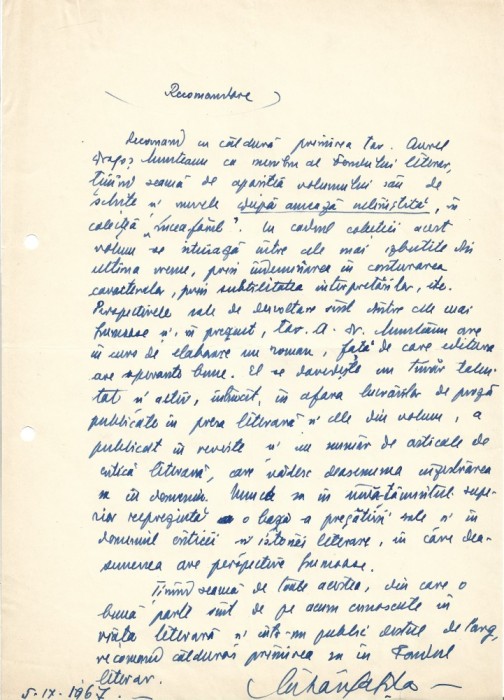 Recomandare
Recomand cu căldură primirea tov. Aurel
Dragoș Munteanu ca membru al Fondului literar,
ținînd seamă de apariția volumului său de
schițe și nuvele „După amiază neliniștită", în
colecția „Luceafărul". În cadrul colecției acest
volum se situează între cele mai izbutite din
ultima vreme, prin îndemînarea în conturarea
caracterelor, prin subtilitatea interpretărilor, etc.
Perspectivele sale de dezvoltare sînt dintre cele mai
frumoase și, în prezent, tov. A. Dr. Munteanu are
în curs de elaborare un roman, față de care editura
are speranțe bune. El se dovedește un tînăr talen-
tat și activ, întrucît, în afara lucrărilor de proză
publicate în presa literară și cele din volum, a
publicat în reviste și un număr de articole de
critică literară, care vădesc deasemenea înzestrarea
sa în domeniu. Munca sa în învățămîntul supe-
rior reprezintă o bază a pregătirii sale și în
domeniul criticii și istoriei literare, în care dea-
semenea are perspective frumoase.
Ținînd seamă de toate acestea, din care o
bună parte sînt de pe acum cunoscute în
viața literară și într-un public destul de larg,
recomand călduros primirea sa în Fondul
literar.
5.IX.1967